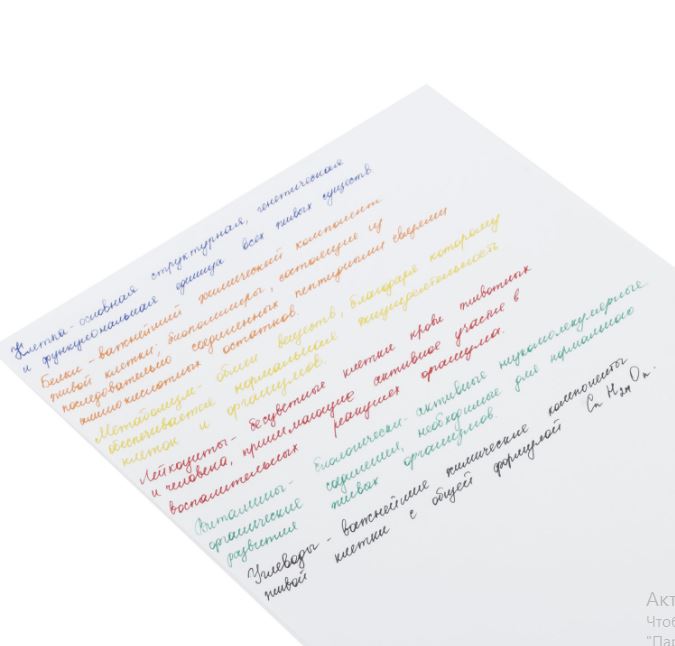 Клетка - основная структурная, генетическая
и функциональная единица всех живых существ.
Белки - важнейший химический компонент
живой клетки; биополимеры, состоящие из
последовательно соединенных пептидными связями
аминокислотных остатков.
Метаболизм- обмен веществ, благодаря которому
обеспечивается нормальная жизнедеятельность
клеток и организмов.
Лейкоциты- бесцветные клетки крови животных
и человека, принимающие активное участие в
воспалительных реакциях организма.
Витамины- биологически- активные низкомолекулярные
органические соединения, необходимые для нормального
развития живых организмов.
Углеводы - важнейшие химические компоненты
живой клетки с общей формулой Cn H2n On.
Акт
Чтоб
"Пар